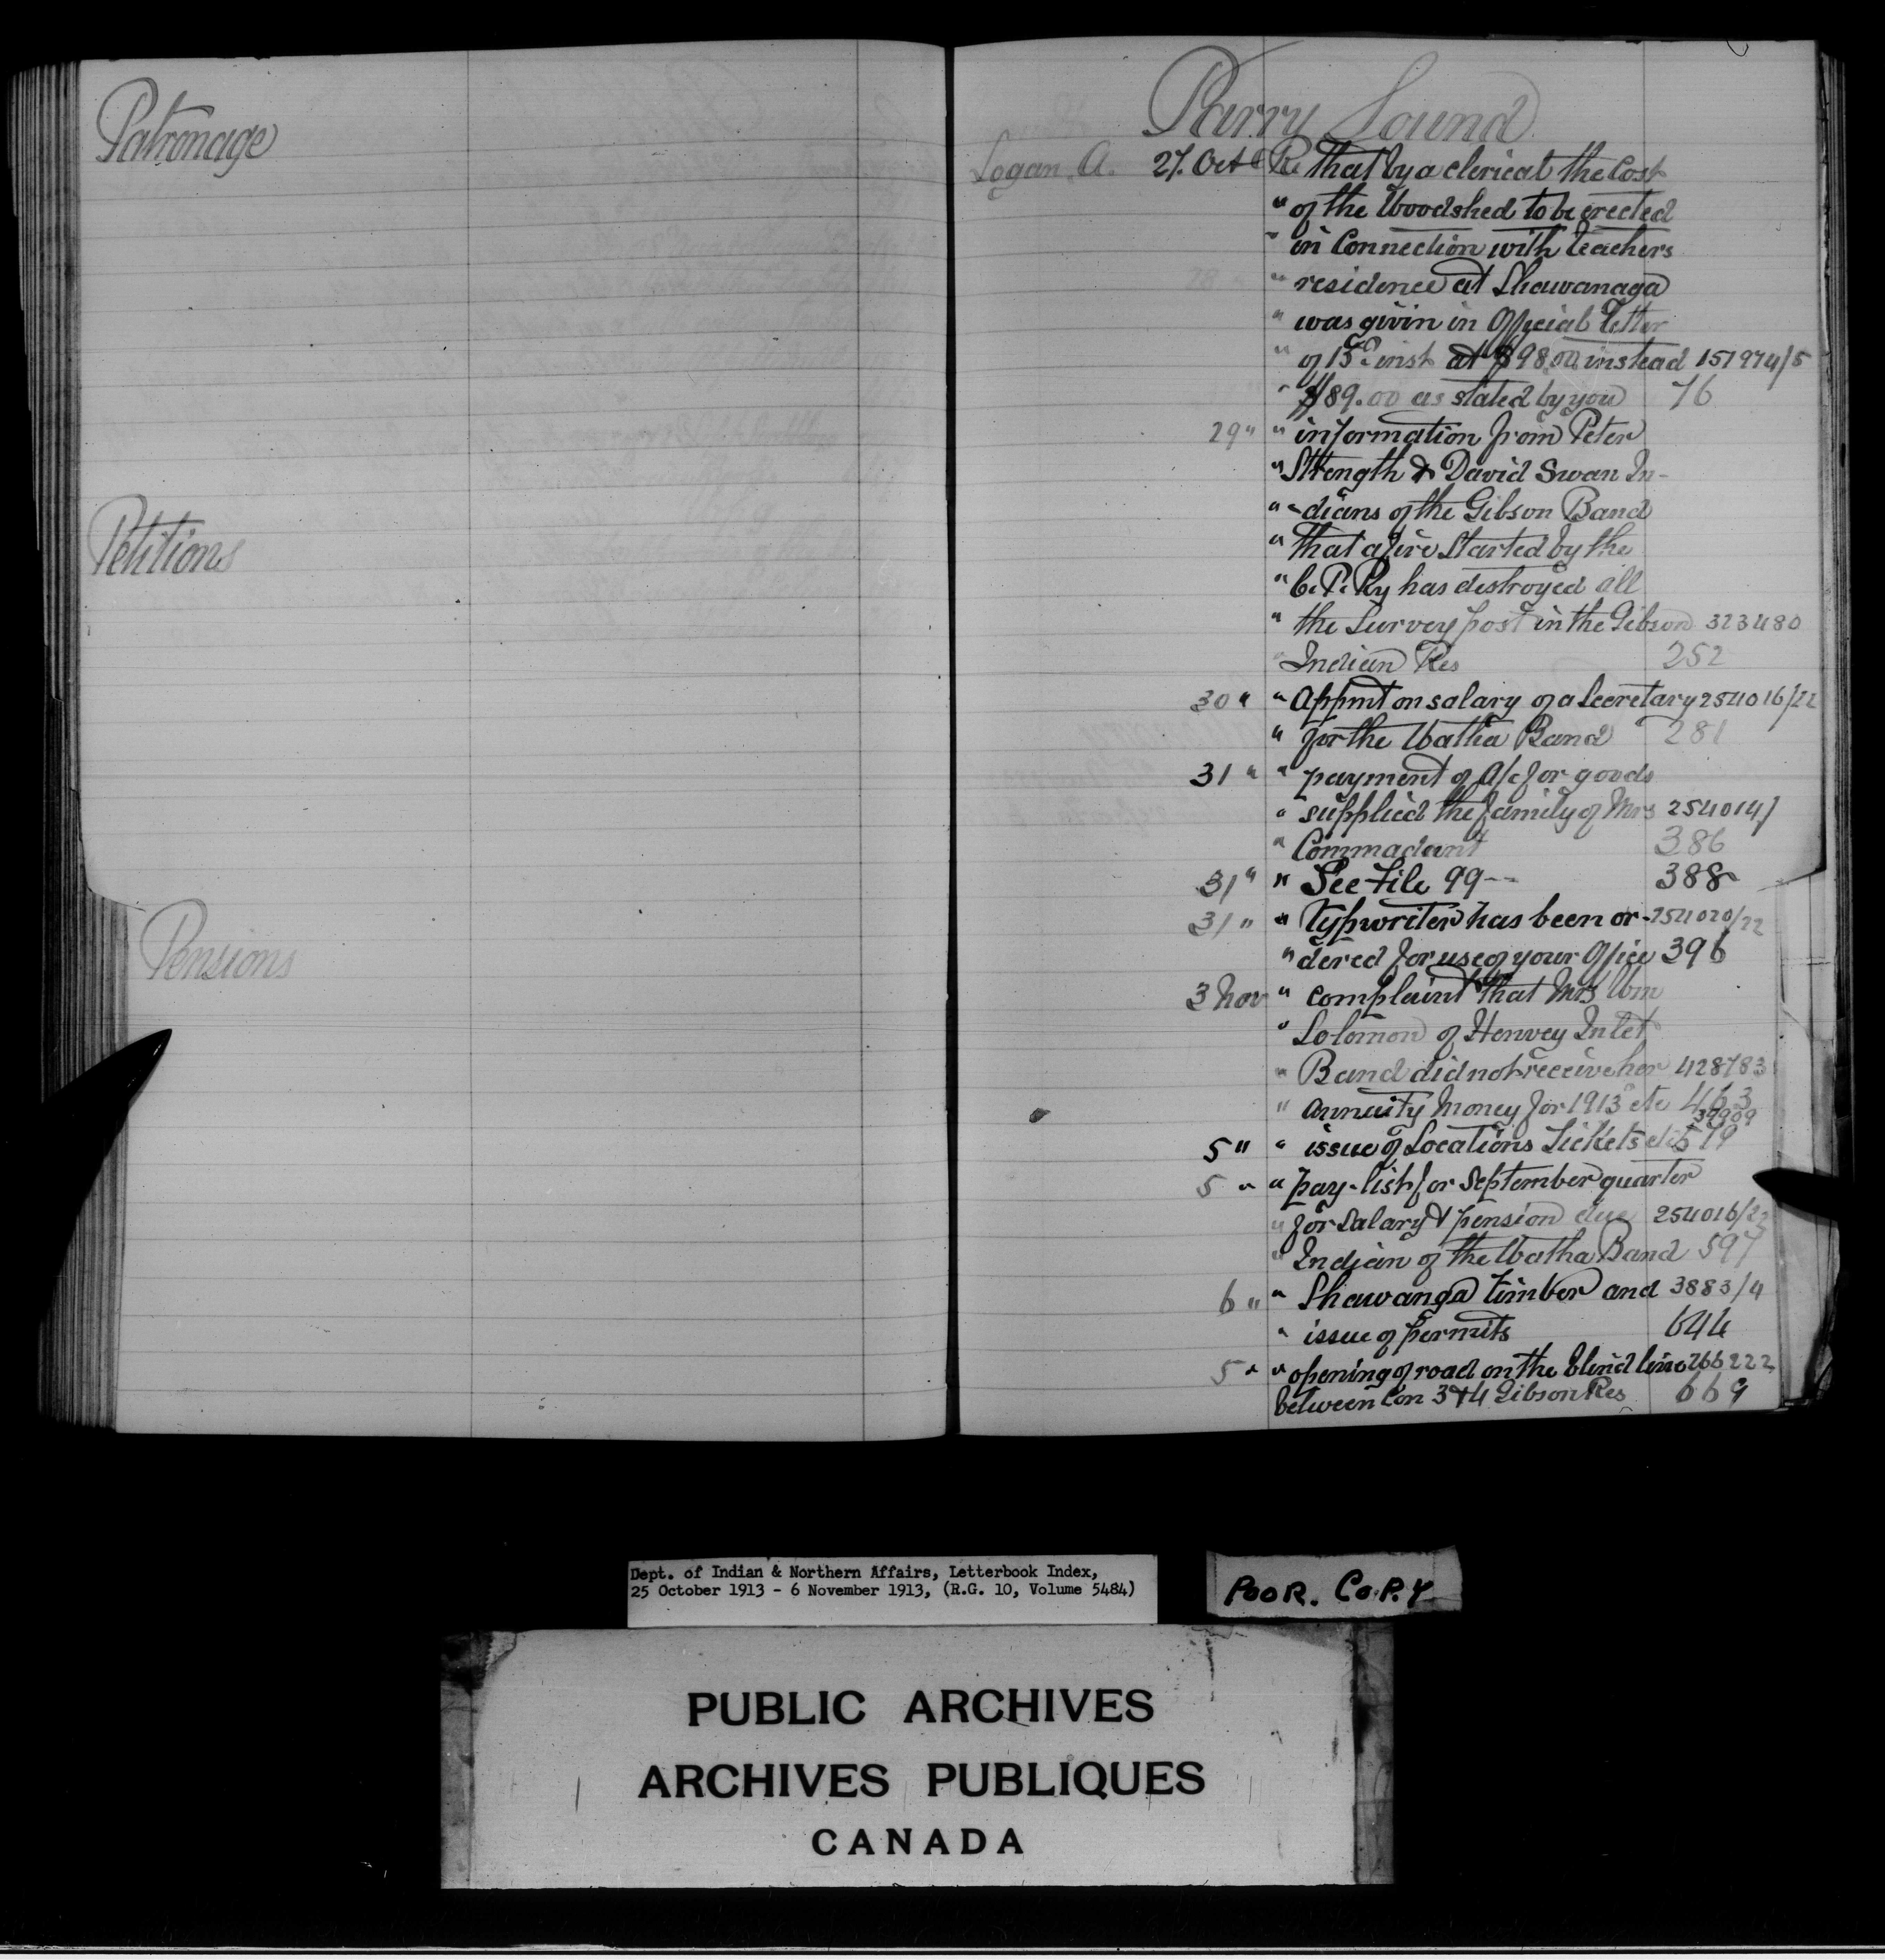 Patronage
Petitions
Pensions
Parry Sound
Logan A. 27. Oct Re that by a clerical the Cost
" of the Woodshed to be erected
" in Connection with teachers
28 " " residence at Shawanaga
" was givin in Official Letter
" of 15th inst at $98.00 instead 151974/5
" $89.00 as stated by you 76
29 " " information from Peter
" Strength & David Swan In-
" -dians of the Gibson Band
" that a fire Started by the
" C. P. Ry has destroyed all
" the Survey post in the Gibson 323480
" Indian Res 252
30 " " Appmt on salary of a Secretary 254016/22
" for the Watha Band 281
31 " " payment of A/c for goods
" supplied the family of Mrs 254014/
" Commadant 386
31 " " See File 99-- 388
31 " " Typwriter has been or- 254020/22
" dered for use of your Office 396
3 Nov " complaint that Mrs Wm
" Solomon of Henvey Inlet
" Band did not receive her 428783
" annuity Money for 1913 etc 463
39909
5 " " issue of Locations Tickets etc 579
5 " " pay-list for September quarter
" for Salary & pension due 254016/22
" Indian of the Watha Band 597
6 " " Shawanga timber and 3883/4
" issue of permits 644
5 " " opening of road on the blind line 266222
between Con 3 & 4 Gibson Res 669
Dept. of Indian & Northern Affairs, Letterbook Index,
25 October 1913 - 6 November 1913, (R.G. 10, Volume 5484)
POOR. COPY
PUBLIC ARCHIVES
ARCHIVES PUBLIQUES
CANADA